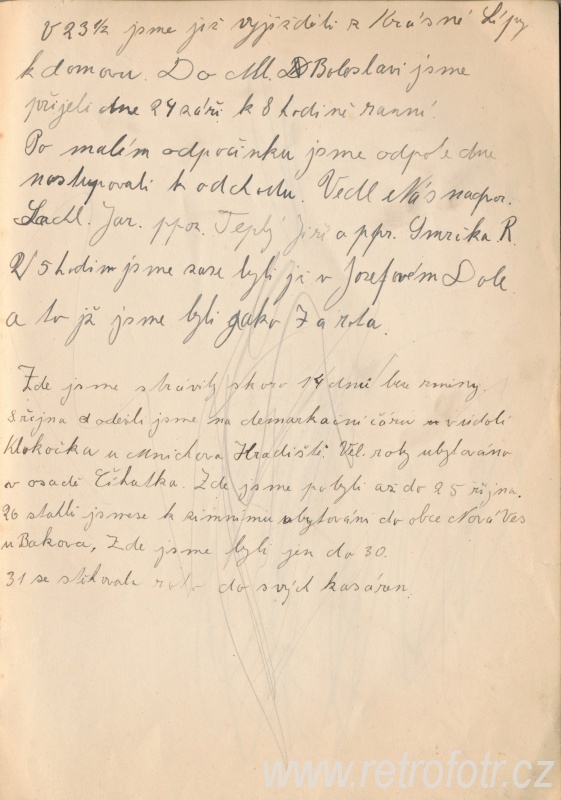 V 23 ½ jsme již vyjížděli z Krásné Lípy
k domovu. Do Ml. Boleslavi jsme
přijeli dne 24 září k 8 hodině ranní.
Po malém odpočinku jsme odpole dne
nastupovali k odchodu. Vedl Nás nadpor.
Lachl. Jar. ppor. Teplý Jiří a ppr. Smrčka R.
V 5 hodin jsme zase byli již v Josefovém Dole
a to již jsme byli jako 7 a rota.
Zde jsme strávily skoro 14 dnů beze změny.
8. října odešli jsme na demarkační čáru v údolí
Klokočka u Mnichova Hradiště. Vel. roty ubytováno
v osadě Číhatka. Zde jsme pobyli až do 25 října.
26 stáhli jsme se k zimnímu ubytování do obce Nová Ves
u Bakova, Zde jsme byli jen do 30.
31 se stěhovala rota do svých kasáren.
www.retrofotr.cz